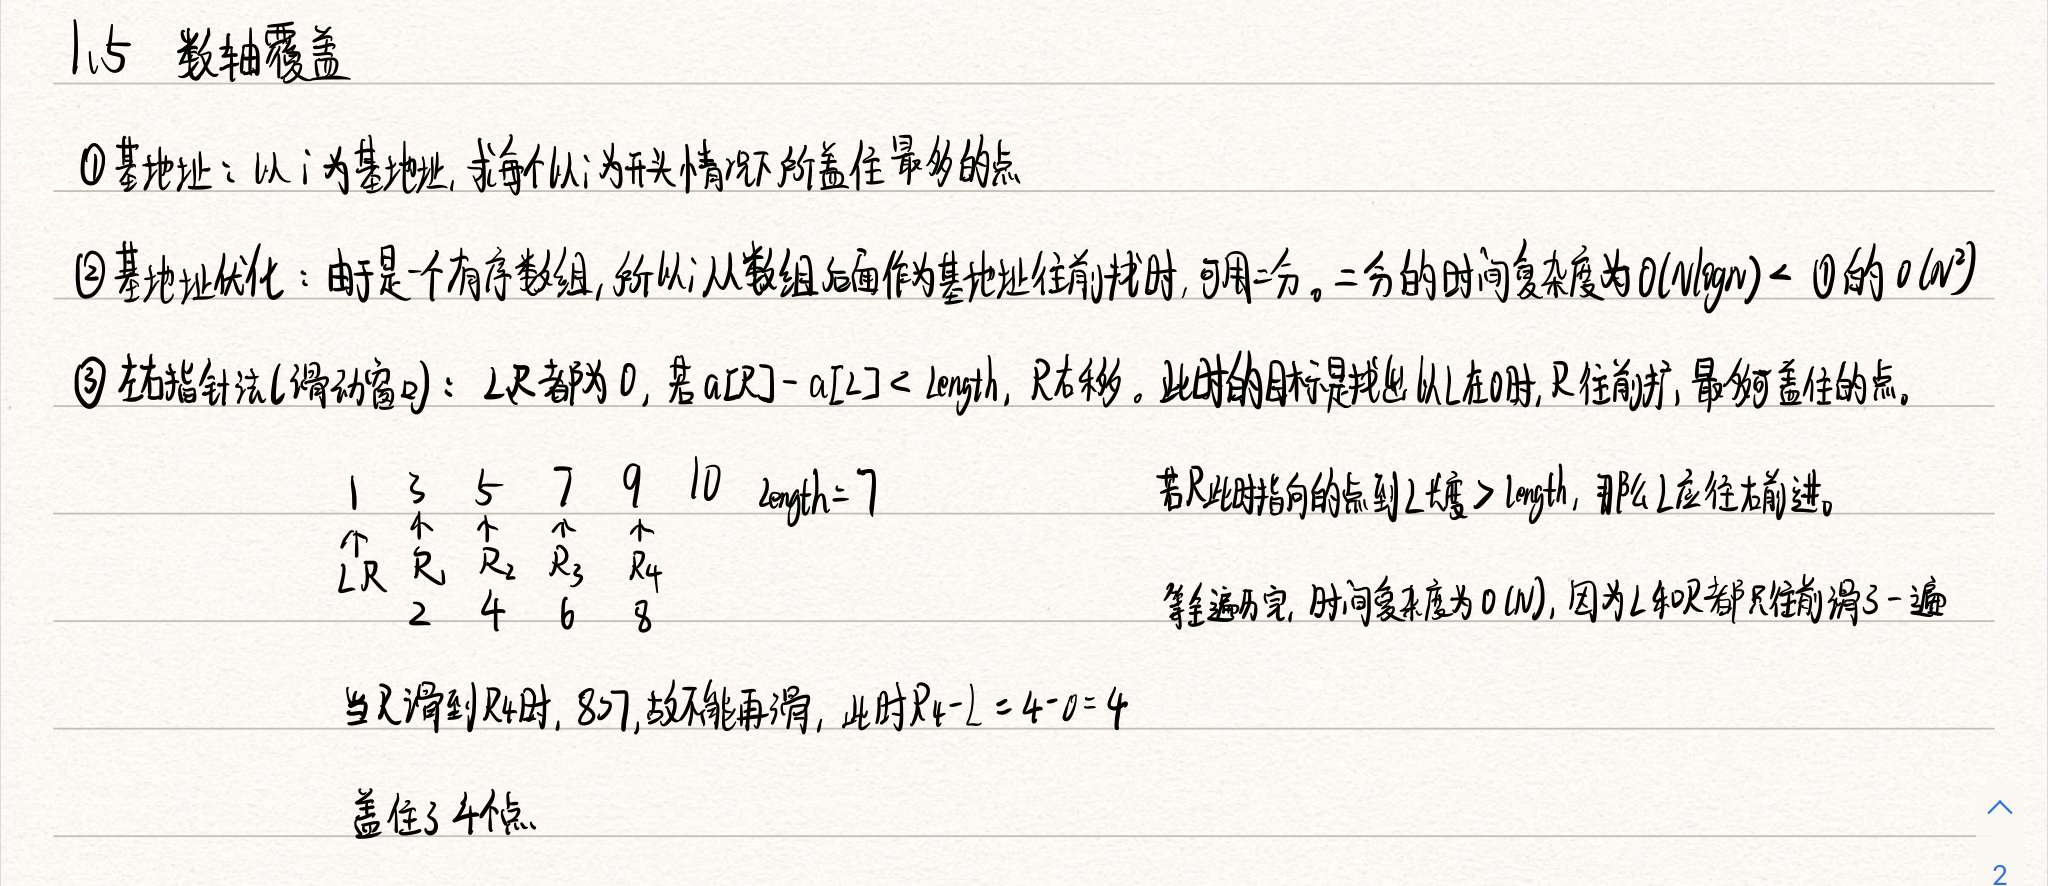 1.5 数轴覆盖
① 基地址：以 i 为基地址, 求每个以 i 为开头情况下所盖住最多的点
② 基地址优化：由于是一个有序数组, 所以 i 从数组后面作为基地址往前找时, 可用二分。二分的时间复杂度为 O(Nlogn) < ①的 O(N²)
③ 左右指针法(滑动窗口)：L,R 都为 0, 若 a[R] - a[L] < Length, R右移。此时的目标是找出以L在0时, R往前扩, 最多可盖住的点。
1 3 5 7 9 10 Length = 7
↑ ↑ ↑ ↑ ↑
LR R₁ R₂ R₃ R₄
2 4 6 8
若R此时指向的点到L长度 > length, 那么L应往右前进。
等全遍历完, 时间复杂度为 O(N), 因为L和R都只往前滑了一遍
当R滑到R₄时, 8>7, 故不能再滑, 此时R₄-L = 4-0 = 4
盖住了4个点
2